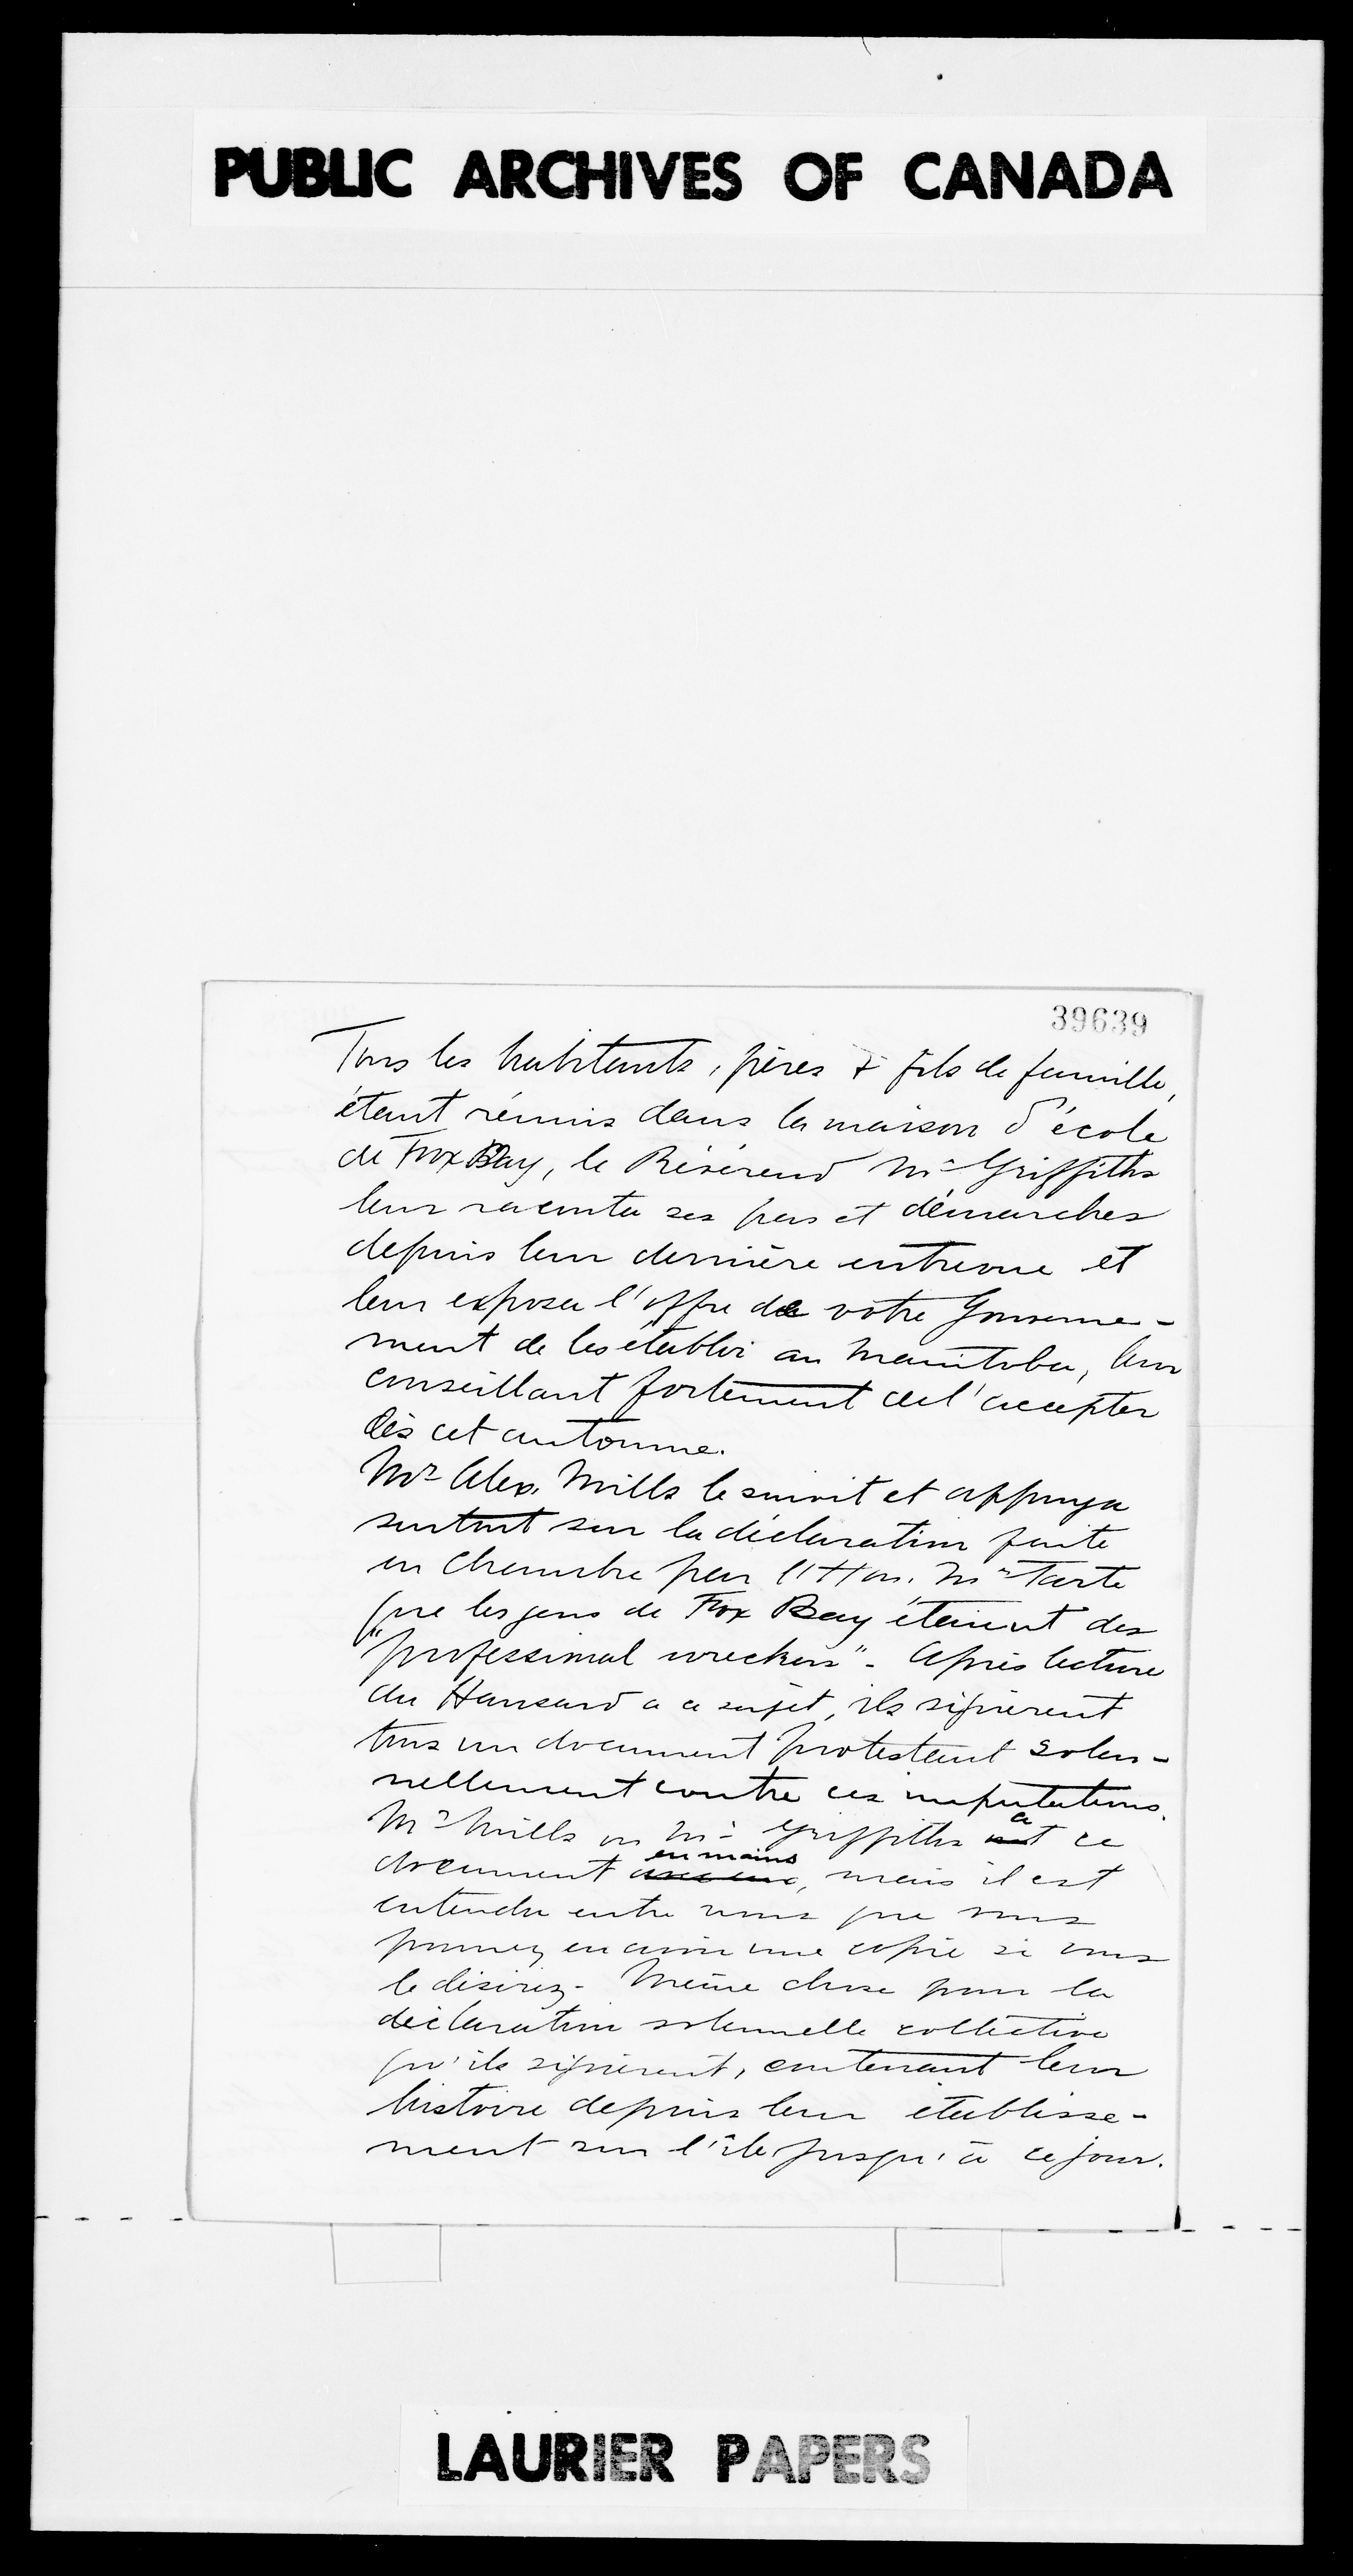 PUBLIC ARCHIVES OF CANADA
39639
Tous les habitants, pères & fils de famille,
étant réunis dans la maison d'école
de Fox Bay, le Révérend Mr Griffiths
leur raconta ses pas et démarches
depuis leur dernière entrevue et
leur exposa l'offre de votre Gouverne-
ment de les établir au Manitoba, leur
conseillant fortement de l'accepter
dès cet automne.
Mr Alex. Mills le suivit et appuya
surtout sur la déclaration faite
en Chambre par l'Hon. Mr Tarte
que les gens de Fox Bay étaient des
"professional wreckers". Après lecture
du Hansard a ce sujet, ils signèrent
tous un document protestant solen-
nellement contre ces imputations.
Mr Mills ou Mr Griffiths a ce
document en mains, mais il est
entendu entre nous que vous
pourrez en avoir une copie si vous
le désirez. Même chose pour la
déclaration solennelle collective
qu'ils signèrent, contenant leur
histoire depuis leur établisse-
ment sur l'île jusqu'à ce jour.
LAURIER PAPERS